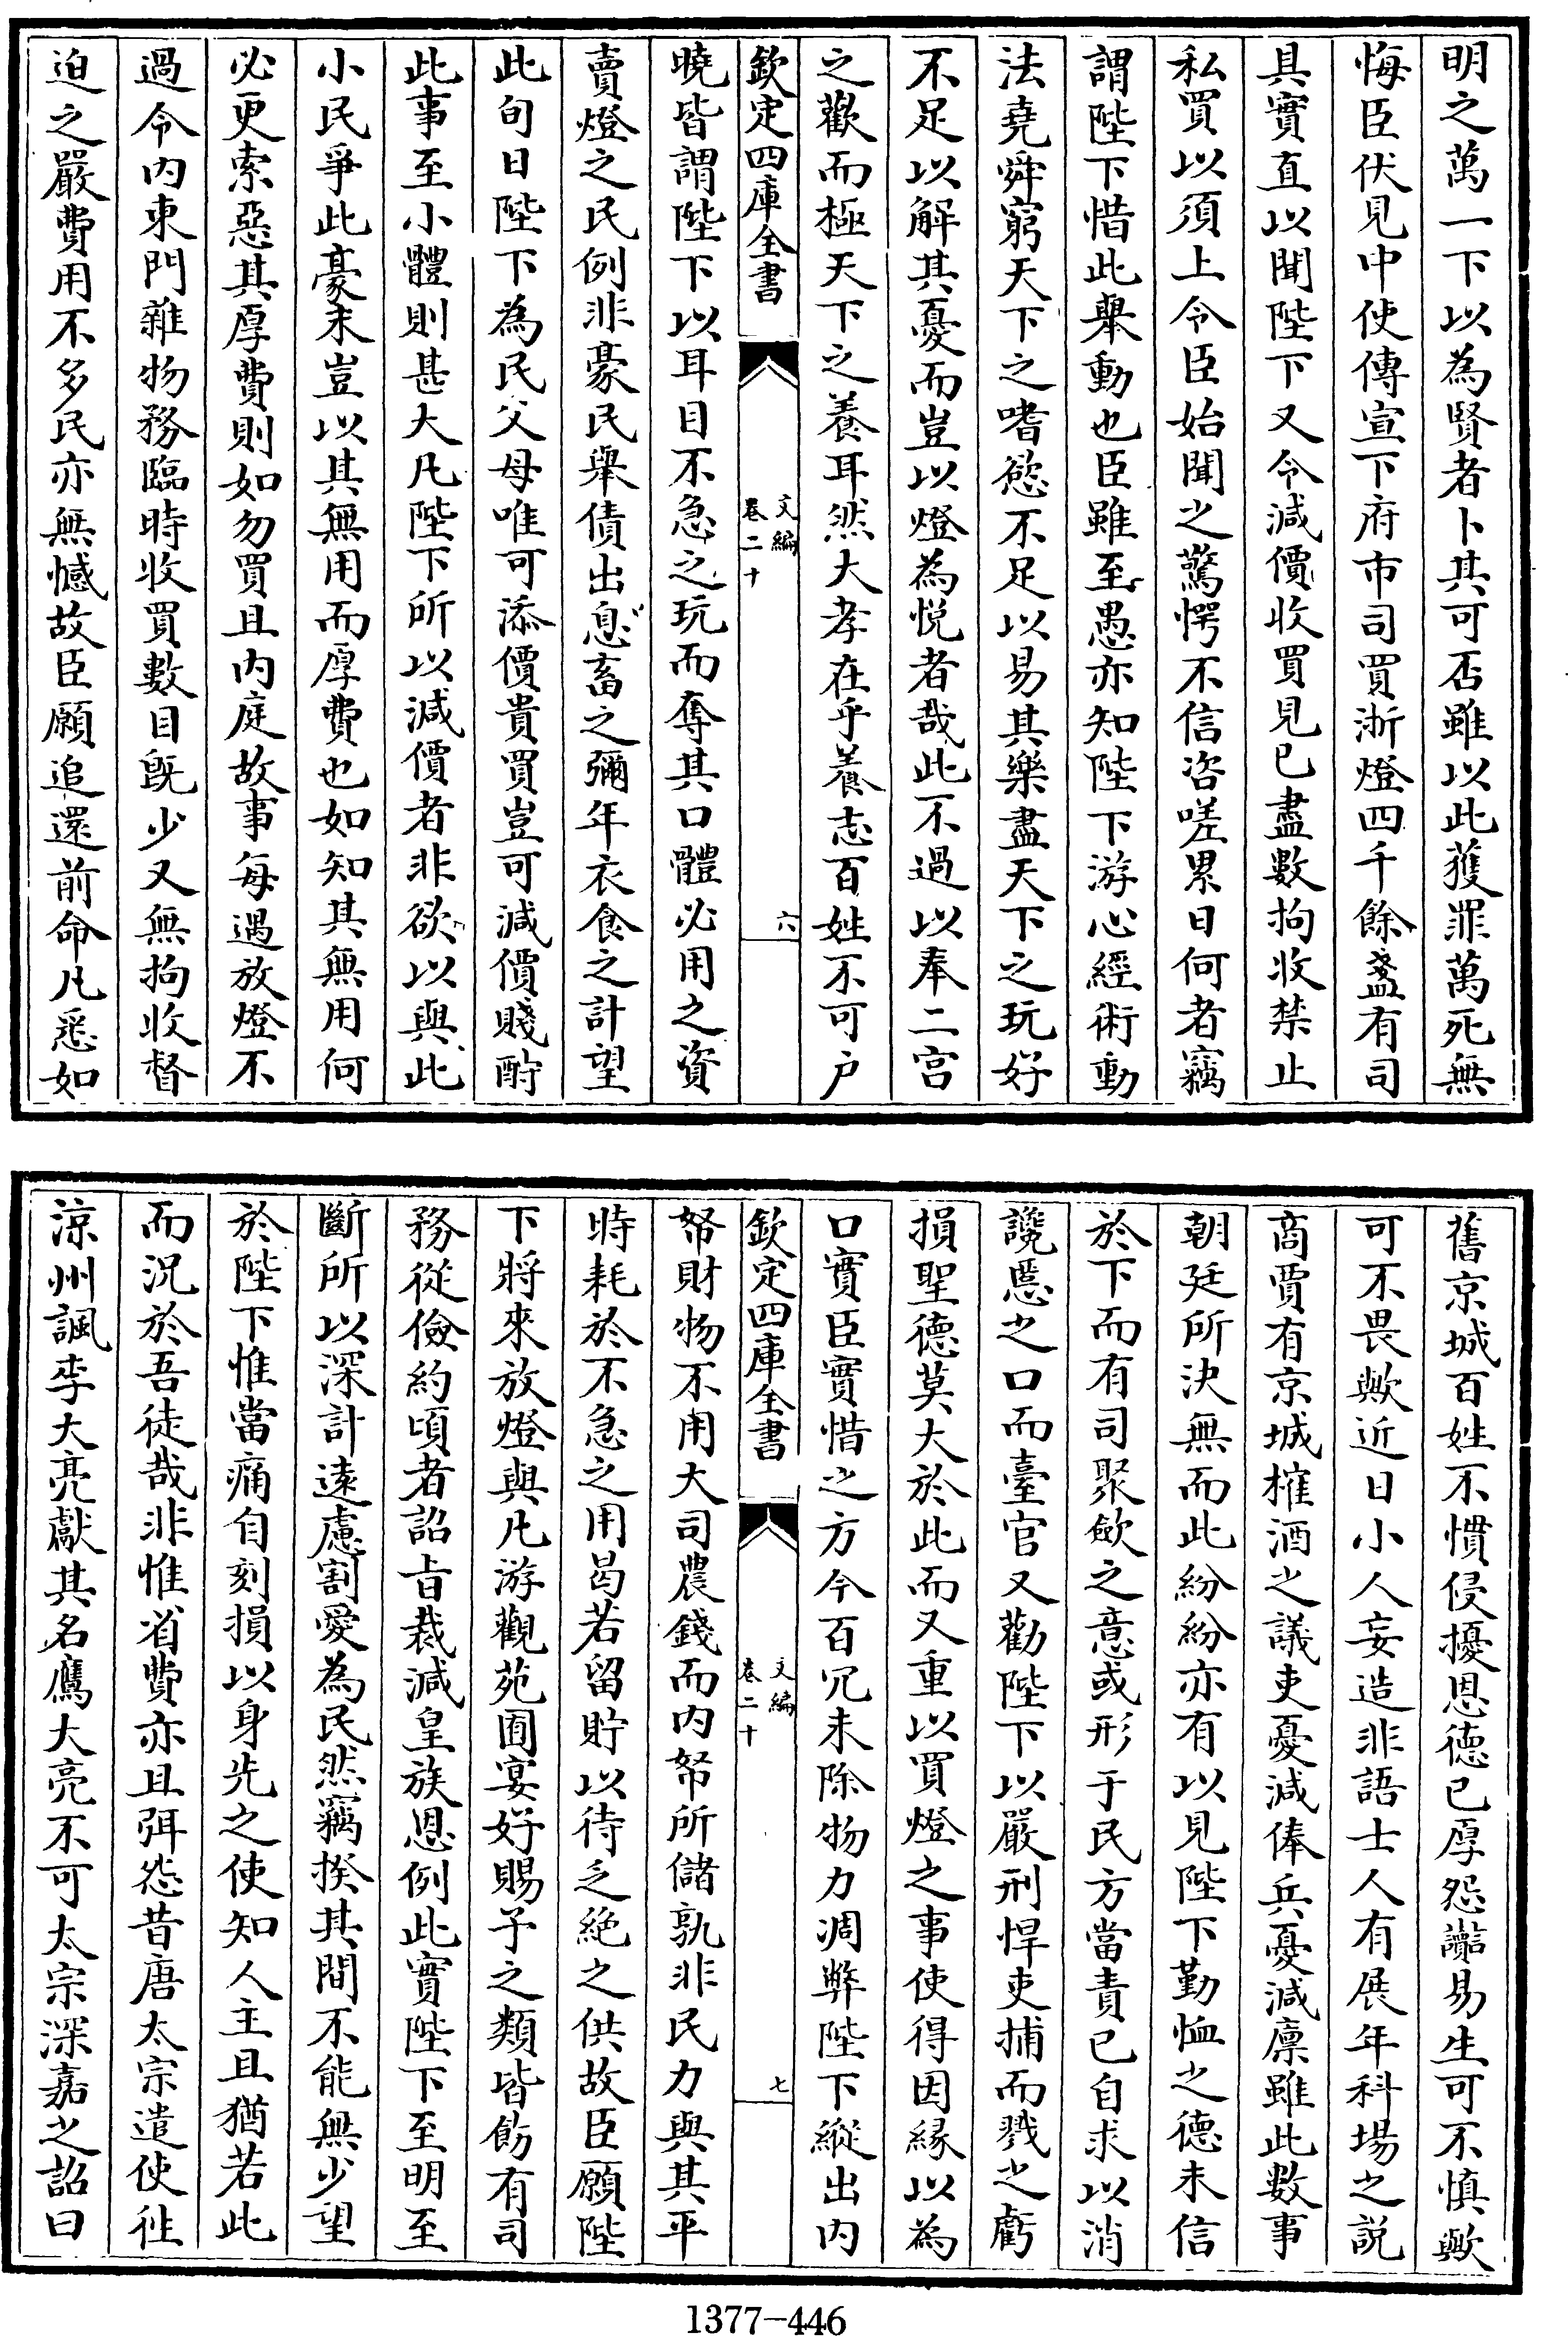 明之萬一下以為賢者卜其可否雖以此獲罪萬死無
悔臣伏見中使傳宣下府市司買浙燈四千餘盞有司
具實直以聞陛下又令減價收買見已盡數拘收禁止
私買以須上令臣始聞之驚愕不信咨嗟累日何者竊
謂陛下惜此舉動也臣雖至愚亦知陛下游心經術動
法堯舜窮天下之嗜慾不足以易其樂盡天下之玩好
不足以解其憂而豈以燈為悅者哉此不過以奉二宮
之歡而極天下之養耳然大孝在乎養志百姓不可户
欽定四庫全書
文編
卷二十
六
曉皆謂陛下以耳目不急之玩而奪其口體必用之資
賣燈之民例非豪民舉債出息畜之彌年衣食之計望
此旬日陛下為民父母唯可添價貴買豈可減價賤酧
此事至小體則甚大凡陛下所以減價者非欲以與此
小民爭此豪末豈以其無用而厚費也如知其無用何
必更索惡其厚費則如勿買且内庭故事每遇放燈不
過令内東門雜物務臨時收買數目旣少又無拘收督
迫之嚴費用不多民亦無憾故臣願追還前命凡悉如
舊京城百姓不慣侵擾恩德已厚怨讟易生可不慎歟
可不畏歟近日小人妄造非語士人有展年科場之説
商賈有京城榷酒之議吏憂減俸兵憂減廪雖此數事
朝廷所決無而此紛紛亦有以見陛下勤恤之德未信
於下而有司聚歛之意或形于民方當責已自求以消
讒慝之口而臺官又勸陛下以嚴刑悍吏捕而戮之虧
損聖德莫大於此而又重以買燈之事使得因緣以為
口實臣實惜之方今百冗未除物力凋弊陛下縱出内
欽定四庫全書
文編
卷二十
七
帑財物不用大司農錢而内帑所儲孰非民力與其平
時耗於不急之用曷若留貯以待乏絶之供故臣願陛
下將來放燈與凡游觀苑囿宴好賜予之類皆飭有司
務從儉約頃者詔旨裁減皇族恩例此實陛下至明至
斷所以深計遠慮割愛為民然竊揆其間不能無少望
於陛下惟當痛自刻損以身先之使知人主且猶若此
而況於吾徒哉非惟省費亦且弭怨昔唐太宗遣使徃
涼州諷李大亮獻其名鷹大亮不可太宗深嘉之詔曰
1377-446